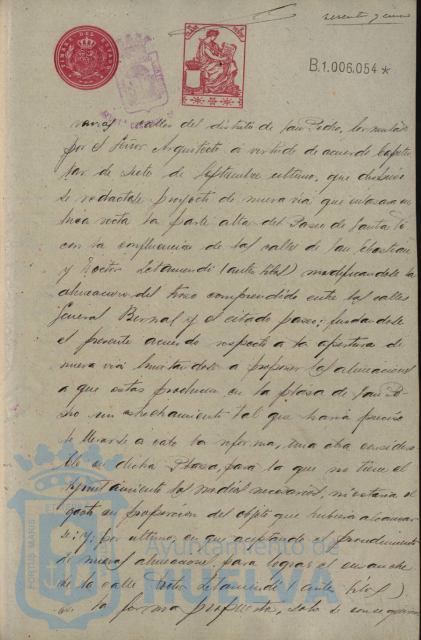 sesenta y cinco
TIMBRE DEL ESTADO
B.1.006.054*
varias calles del distrito de San Pedro, formulado
por el Señor Arquitecto a virtud de acuerdo Capitu-
lar de siete de Septiembre último, que dispuso
se redactase proyecto de nueva via que enlazase en
linea recta la parte alta del Paseo de Santa Fé
con la confluencia de las calles de San Sebastian
y Doctor Letamendi (ante Silos) modificandole la
alineacion del trozo comprendido entre las calles
General Bernal y el citado paseo; fundandole
el presente acuerdo respecto a la apertura de
nueva via limitandose a proponer las alineaciones
a que estas producen en la plaza de San Pe-
dro un estrechamiento tal que haria preciso
llevarse a cabo la reforma, una obra considera-
ble en dicha Plaza, para la que no tiene el
Ayuntamiento los medios necesarios, ni estaria el
gasto en proporcion del objeto que hubiera alcanzar-
se; y, por ultimo, en que aceptando el procedimiento
de nuevas alineaciones para lograr el ensanche
de la calle Doctor Letamendi (ante Silos)
en la forma propuesta, solo se conseguiria
PORTUS MARIS
Ayuntamiento de
HUELVA